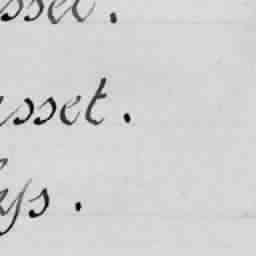 sset.
sset.
ys.